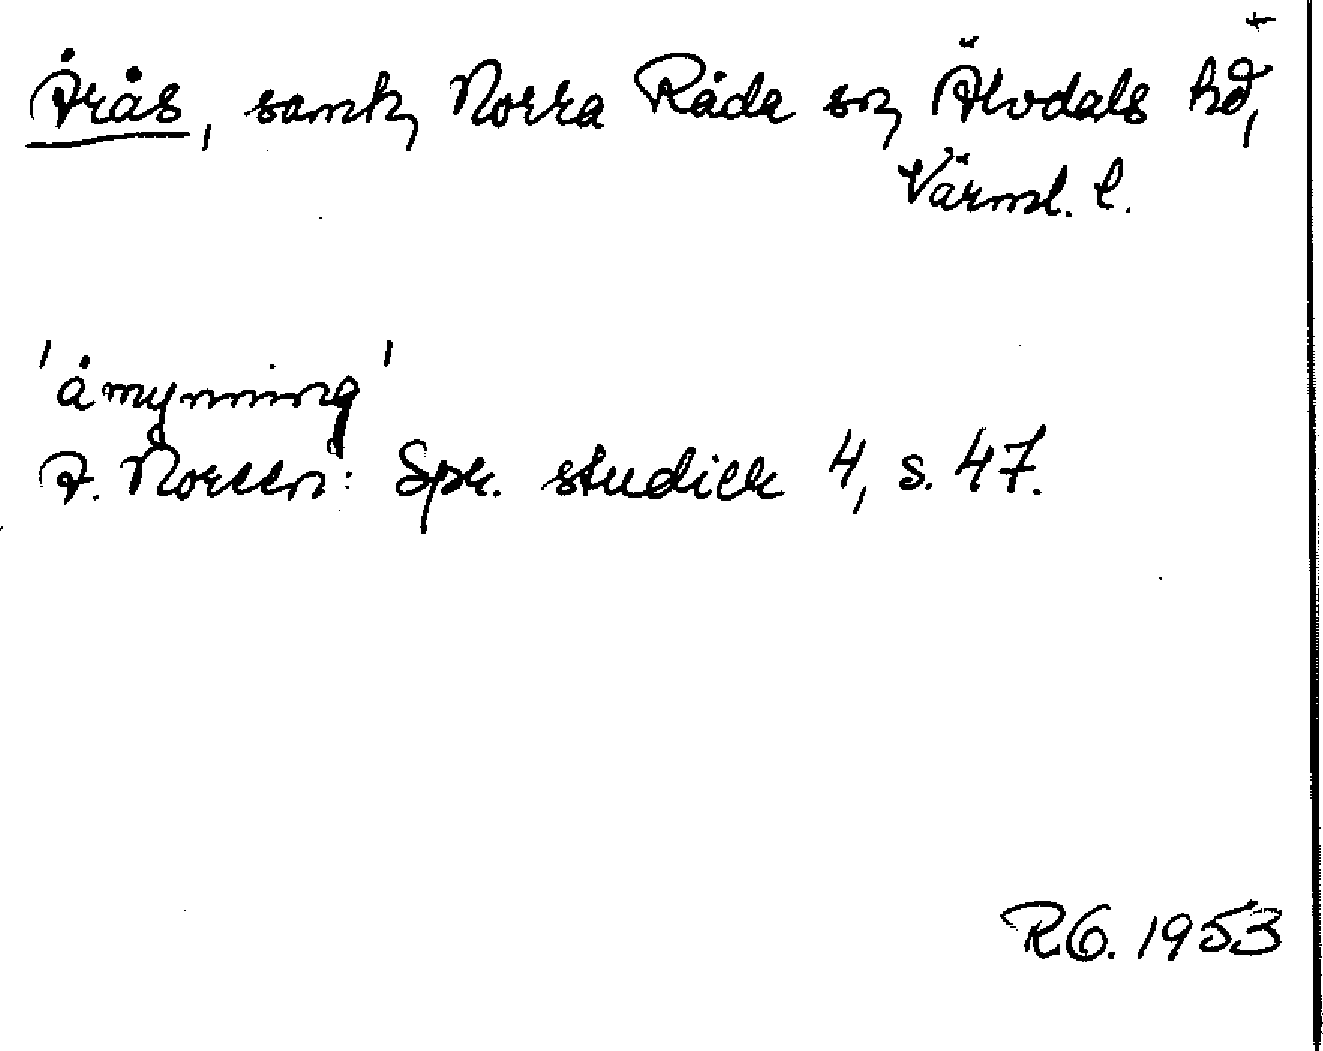 +
Årås, samh, Norra Råda sn, Älvdals hd,
Värml. l.
'åmynning'
A. Noreen: Spr. studier 4, s. 47.
RG. 1953